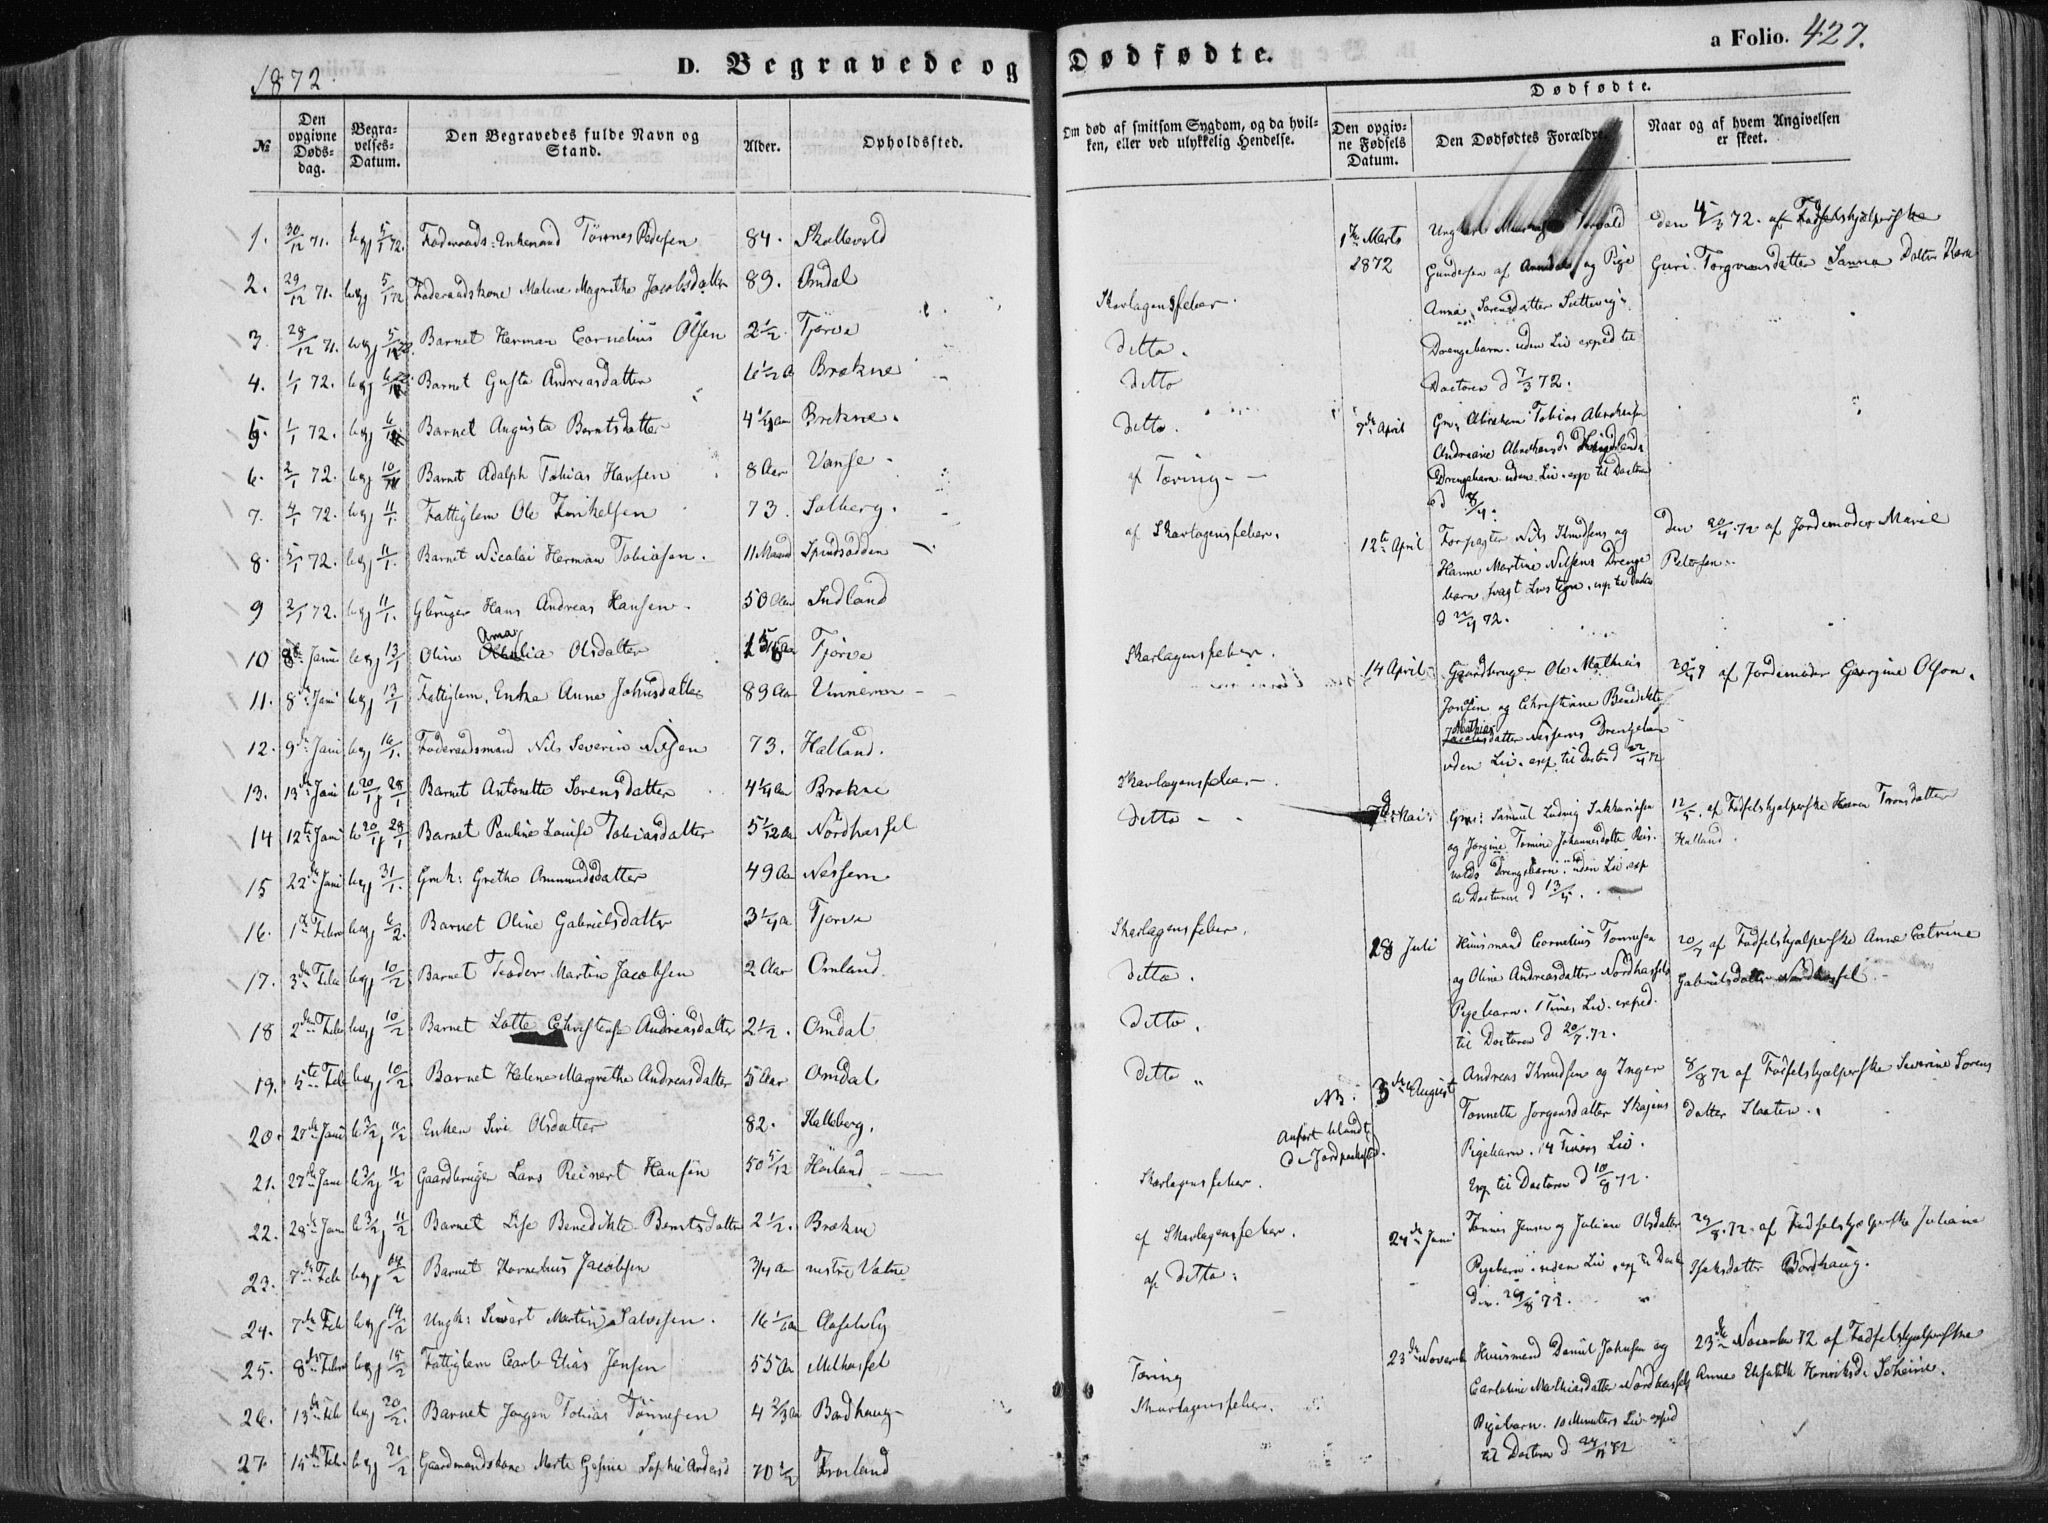 1872.
D. Begravede og Dødfødte.
a Folio. 427.
Dødfødte.
№
Den opgivne Døds-dag.
Begra-velses-Datum.
Den Begravedes fulde Navn og Stand.
Alder.
Opholdssted.
Om død af smitsom Sygdom, og da hvil-ken, eller ved ulykkelig Hendelse.
Den opgiv-ne Fødsels Datum.
Den Dødfødtes Forældre.
Naar og af hvem Angivelsen er skeet.
1. 30/12 71. beg 5/1 72. Enkemand Tønnes Pedersen 84. Skollevold
2. 29/12 71. beg 5/1 72 Føderaadskone Malene Magrethe Jacobsdatter 83. Omdal
3. 28/12 71. beg 5/1 72. Barnet Herman Cornelius Olsen 2 1/2. Tjørve Skarlagensfeber.
4. 1/1 72. beg 6/1 Barnet Gusta Andreasdatter 6 1/2 Brekne ditto.
5. 1/1 72. beg 6/1 Barnet Augusta Berntsdatter 4 1/4 Aar Brekne. ditto
6. 2/1 72. beg 10/1 Barnet Adolph Tobias Hansen 8 Aar Vanse ditto.
7. 4/1 72. beg 11/1. Fattiglem Ole Torkelsen 73. Solberg. af Tæring
8. 5/1 72. beg 11/1. Barnet Nicolai Herman Tobiasen. 11 Maaned Spindsodden af Skarlagensfeber.
9 2/1 72. beg 11/1. Gbruger Hans Andreas Hansen. 50 Aar Indland
10 8de Janr beg 13/1 Oline Amalia Olsdatter Tjørve Skarlagensfeber.
11. 8de Jani beg 13/1 Fattiglem, Enke Anne Johnsdatter 89 Aar Unneren
12. 9de Jani beg 16/1. Føderaadsmand Nils Severin Nilsen 73. Halland.
13. 13de Jani b 20/1 j 28/1 Barnet Antonette Sorensdatter 4 1/4 Aar Brekne Skarlagensfeber.
14 12te Jani b 20/1 j 28/1 Barnet Pauline Louise Tobiasdatter 5 1/12 Aar Nordhassel ditto
15 22de Jani beg 31/1. Gmk: Grethe Ommundsdatter 49 Aar Nessem
16. 1te Febr beg 6/2. Barnet Oline Gabrielsdatter 3 1/4 A Tjorve Skarlagensfeber.
17. 3de Feb beg 10/2 Barnet Teodor Martin Jacobsen 2 Aar Omland ditto.
18 2den Febr beg 10/2 Barnet Lotte Christense Andreasdatter 2 1/2. Omdal ditto.
19. 5te Feb beg 10/2. Barnet Helene Margrethe Andreasdatter 5 Aar Omdal ditto
20. 27de Jani b 3/2 j 11/2 Enken Siri Olsdatter 82. Kalleberg.
21. 27de Jani b 3/2 j 11/2 Gaardbruger Lars Reinert Hansen 50 5/12 Høiland Skarlagensfeber.
22. 28de Jani b 3/2 j 11/2 Barnet Lise Benedikte Berntsdatter 2 1/2. Brekne af Skarlagensfeber.
23. 7de Feb beg 14/2 Barnet Kornelius Jacobsen 3/4 Aar Vatne af ditto.
24. 7de Feb beg 14/2 Ungk: Sivert Martin Salvesen. 16 1/2 Aar
25. 8de Febr beg 15/2 Fattiglem Carl Elias Jensen 55 Aar Melhassel Tæring
26. 13de Feb beg 20/2. Barnet Jorgen Tobias Tønnesen 4 2/3 Aar Bordhaug Skarlagensfeber.
27. 15de Feb. beg 21/2 Gaardmandskone Marte Gesine Sophie Andersd 70 1/2
1te Marts 1872
Ungkarl Torvald
Gundersen af og Pige
Anna Sorensdatter
Drengebarn. uden Liv exped til
Doctoren d 7/3 72.
den 4/3 72. af Fødselshjælperske
Guri Torgrimsdatter
7de April
Abraham Tobias Abrahamsen
Andreane Abrahamsd
Drengebarn uden Liv. exp til Doctoren
d 8/4.
12te April
Forpagter Nils Knudsens og
Hanne Martine Nilsens Drenge
barn, svagt Livstegn, exp til Doctor
d 22/4 72.
den 20/4 72 af Jordemoder Marie
Petersen.
14 April
Gaardbruger Ole Mathias
Jonsen og Christiane Benedikte
Mathias
Jacobsdatter Nessems Drengebarn
uden Liv. exp. til Doctor d 22/4 72
af Jordemoder Georgine Olson.
7de Mai
Samuel Ludvig Sakkariasen
og Jorgine Tomine Johannesdatter
Drengebarn, uden Liv. exp
til Doctoren d 13/5.
12/5. af Fødselshjælperske Karen
Halland.
18 Juli
Huusmand Cornelius Tonnesen
og Oline Andreasdatter Nordhassels
Pigebarn. 1 Times Liv. exped.
til Doctoren d 20/7. 72.
20/7 af Fødselshjælperske Anne Catrine
Gabrielsdatter Nordhassel.
NB: 3de August
Andreas Knudsen og Inger
Tonnette Jorgensdatter Skajens
Pigebarn. 14 Timers Liv.
Exp til Doctoren d 10/8 72.
8/8 72 af Fødselshjælperske Severine Sorens
datter Slaaten.
Anfort blandt
de Jordpaakastd.
24de Juni
Tønnes Jensen og Juliane Olsdatter
Pigebarn. uden Liv. exp til Doctor
den 29/8 72.
29/8. 72. af Fødselshjælperske Juliane
Isaksdatter Bordhaug.
23de Novemb
Huusmand Daniel Johnsen og
Carloline Mathiasdatter Nordhassels
Pigebarn. 10 Minuters Liv. exped
til Doctoren d 24/11 72
23de November 72 af Fødselshjælperske
Anne Elisabeth Henriksd.